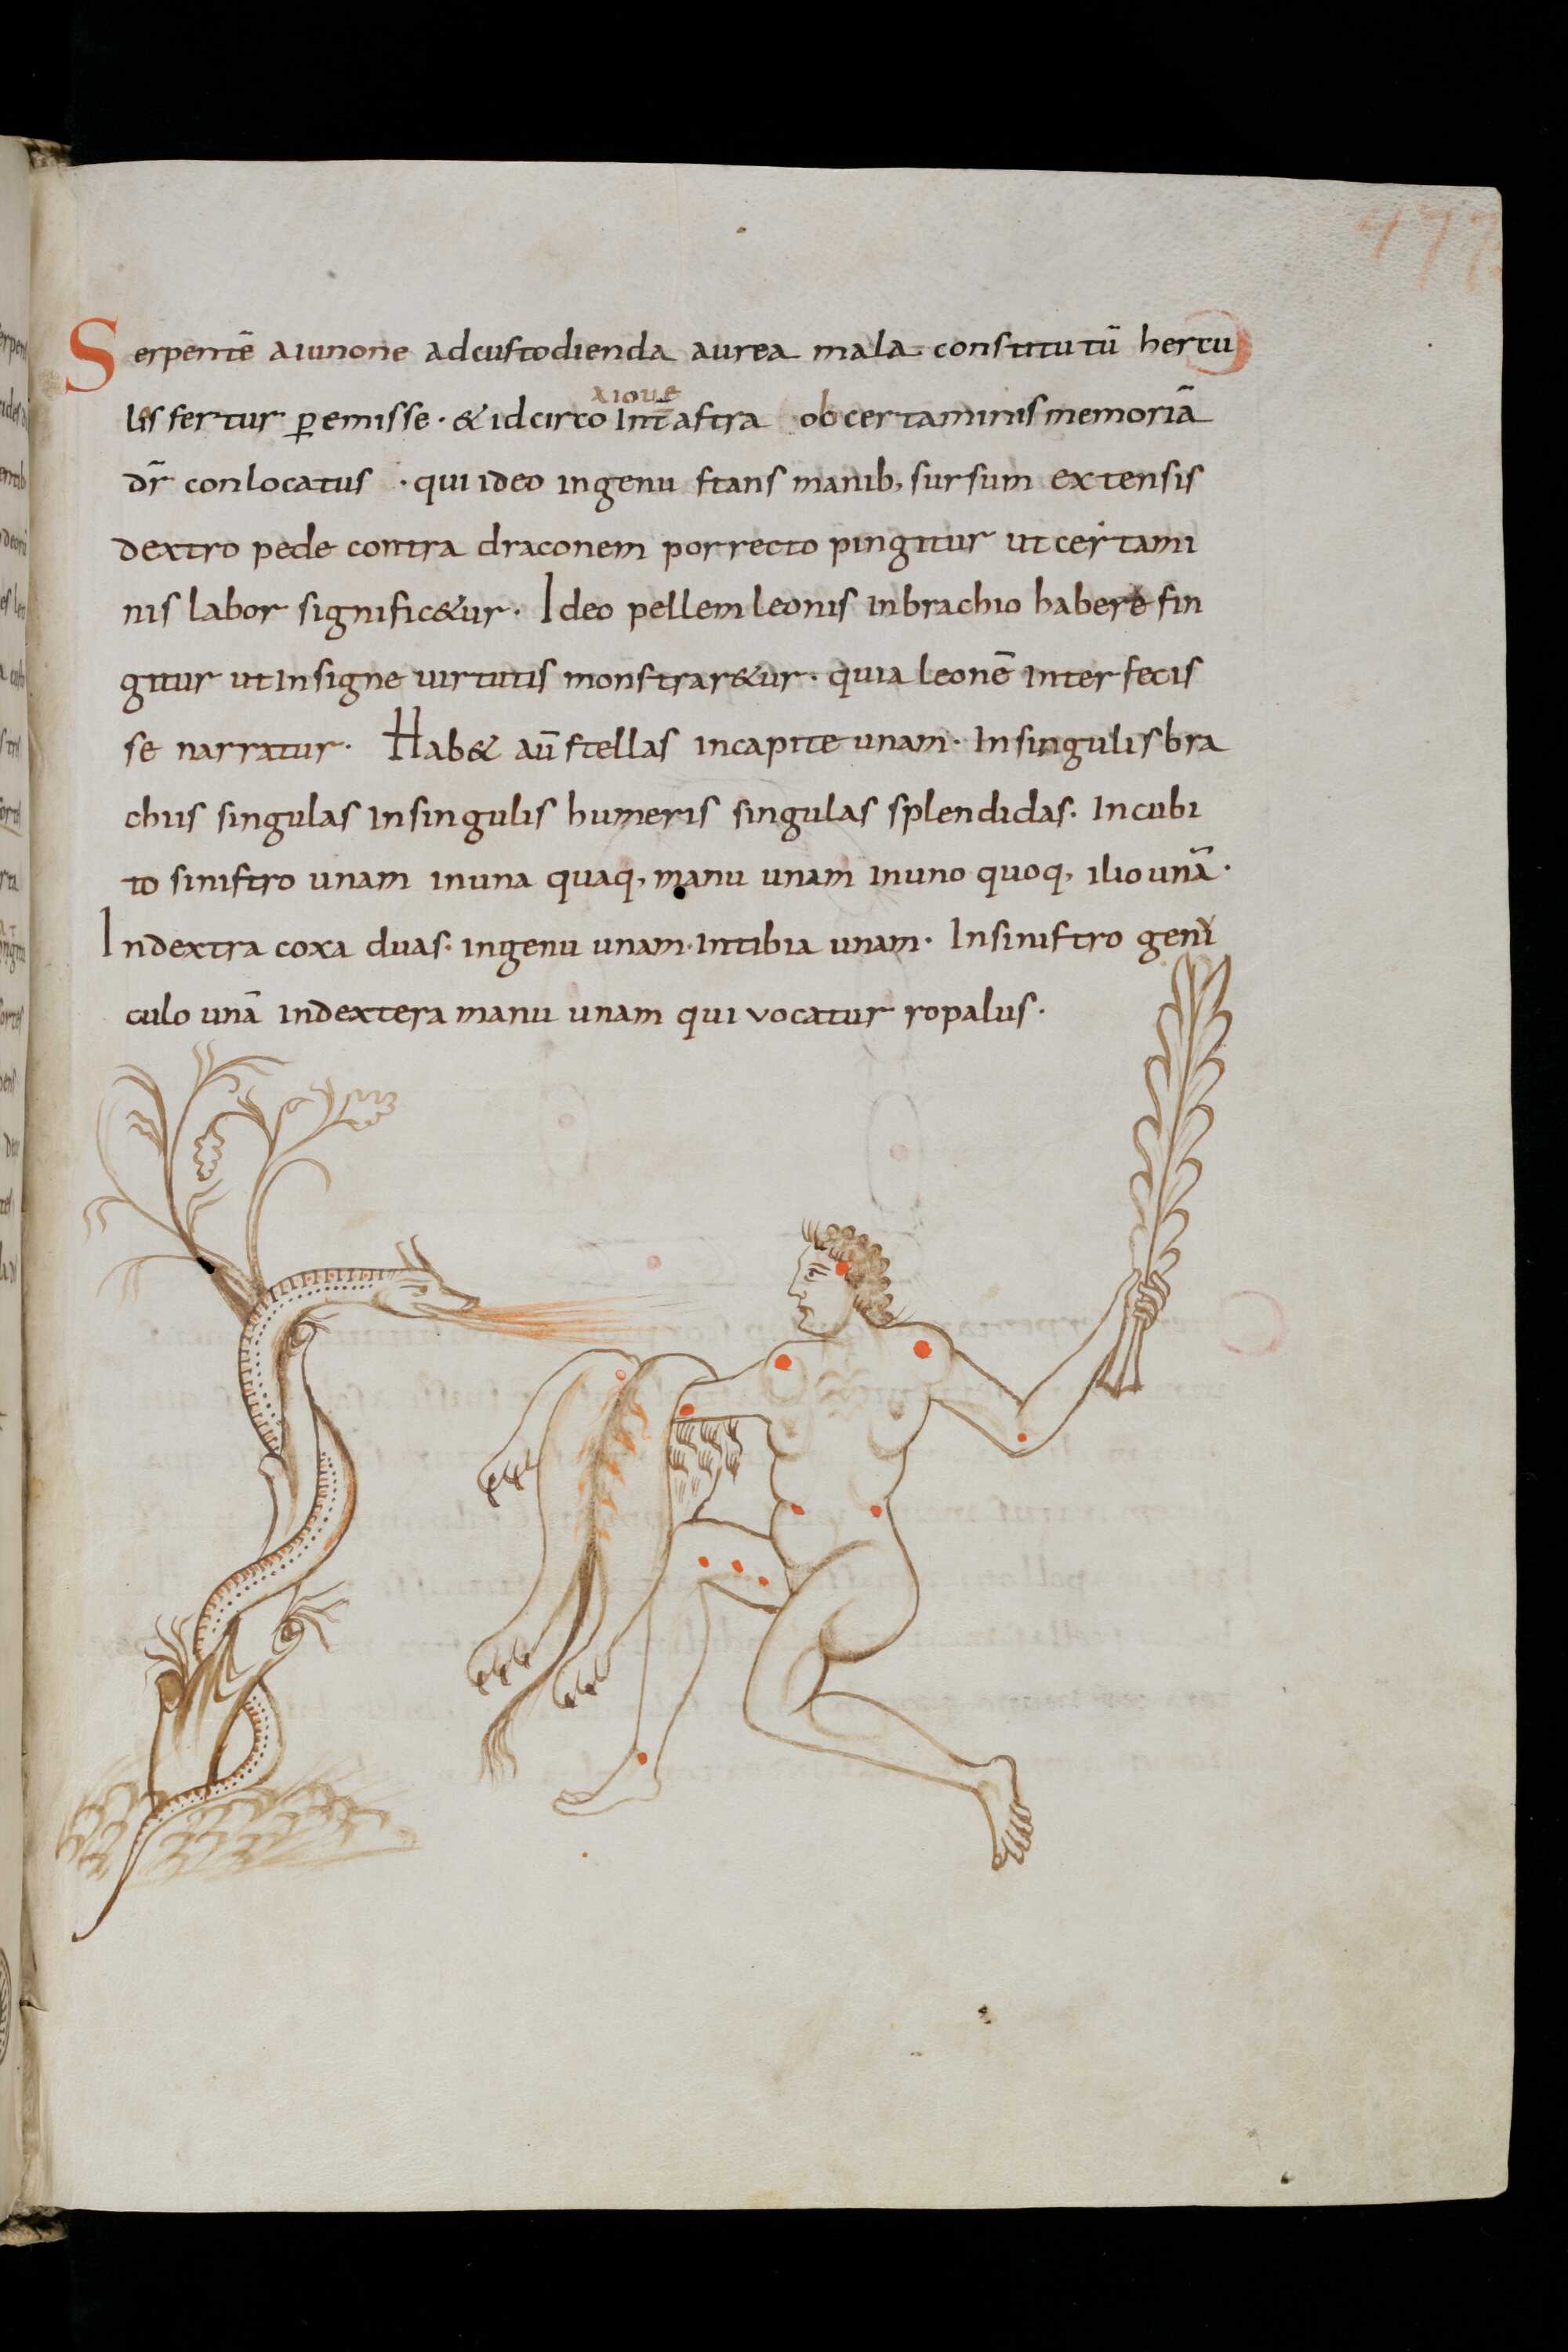 477
Serpentē a iunone ad custodienda aurea mala constitutū hercu
les fertur peremisse · & idcirco Int̄ astra ob certaminis memoriā
a ioue
dr̄ conlocatus · qui ideo in genu stans manib; sursum extensis
dextro pede contra draconem porrecto pingitur ut certami
nis labor signific&ur · Ideo pellem leonis in brachio habere fin
gitur ut Insigne uirtutis monstrar&ur · quia leonē Interfecis
se narratur · Hab& aū stellas in capite unam · In singulis bra
chiis singulas In singulis humeris singulas splendidas · In cubi
to sinistro unam in una quaq; manu unam in uno quoq; ilio unā ·
In dextra coxa duas · in genu unam · In tibia unam · In sinistro geni
culo unā in dextera manu unam qui vocatur ropalus ·